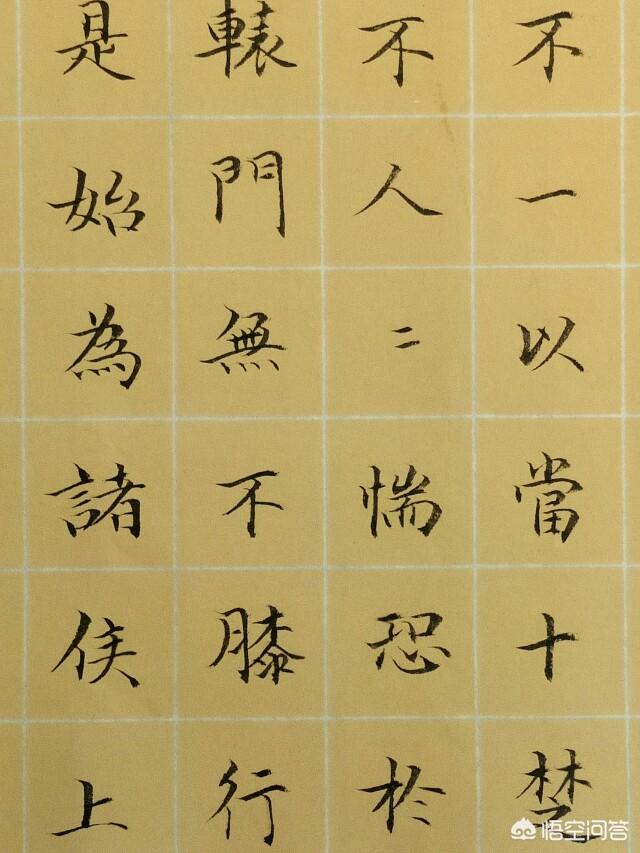 不一以當十楚
不人二惴恐於
轅門無不膝行
是始為諸侯上
悟空问答